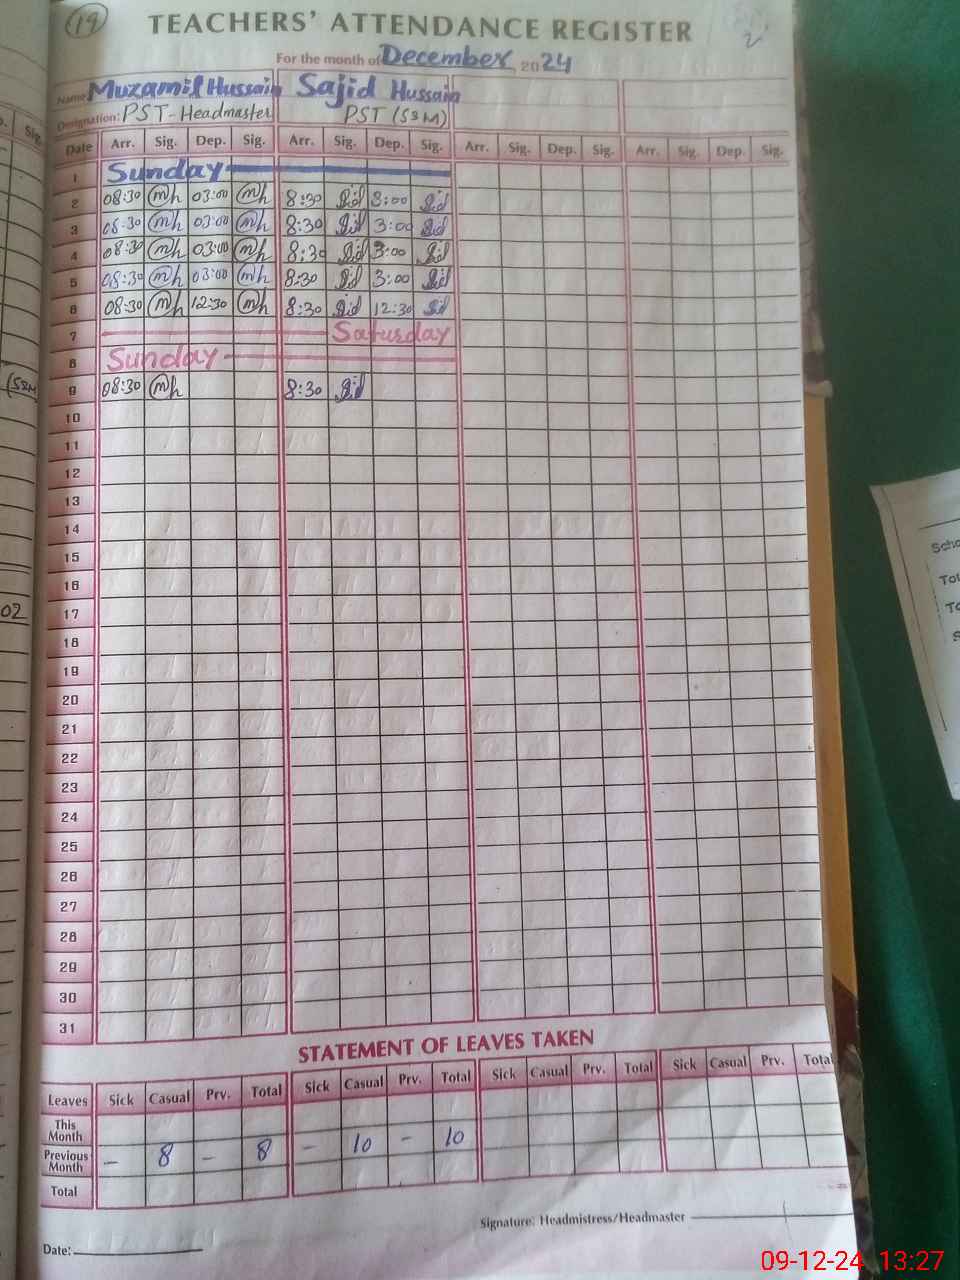 19
TEACHERS' ATTENDANCE REGISTER
For the month of December 2024
Name Muzamil Hussain Sajid Hussain
Designation: PST-Headmaster PST (SSM)
Date Arr. Sig. Dep. Sig. Arr. Sig. Dep. Sig. Arr. Sig. Dep. Sig. Arr. Sig. Dep. Sig.
1 Sunday
2 08:30 mh 03:00 mh 8:30 3:00
3 08:30 mh 03:00 mh 8:30 3:00
4 08:30 mh 03:00 mh 8:30 3:00
5 08:30 mh 03:00 mh 8:30 3:00
6 08:30 mh 12:30 mh 8:30 12:30
7 Saturday
8 Sunday
9 08:30 mh 8:30
10
11
12
13
14
15
16
17
18
19
20
21
22
23
24
25
26
27
28
29
30
31
STATEMENT OF LEAVES TAKEN
Leaves Sick Casual Prv. Total Sick Casual Prv. Total Sick Casual Prv. Total Sick Casual Prv. Total
This Month
Previous Month - 8 - 8 - 10 - 10
Total
Signature: Headmistress/Headmaster
Date:
09-12-24 13:27